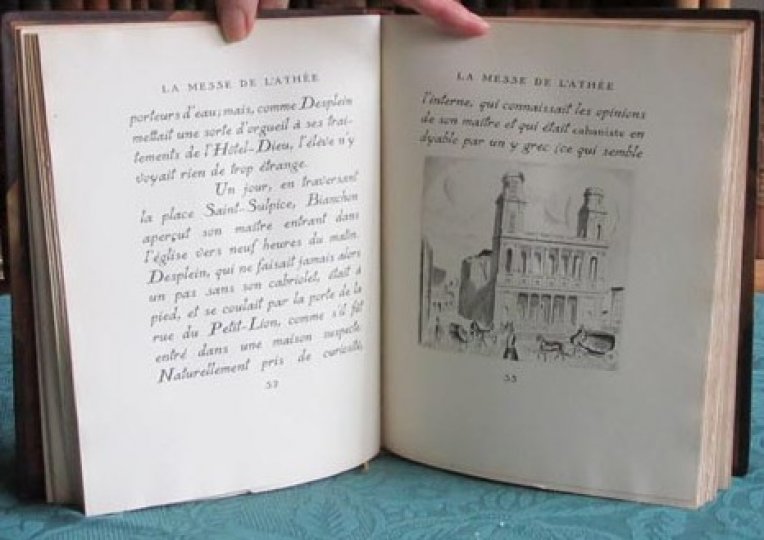 LA MESSE DE L'ATHÉE
porteurs d'eau; mais, comme Desplein
mettait une sorte d'orgueil à ses trai-
tements de l'Hôtel-Dieu, l'élève n'y
voyait rien de trop étrange.
Un jour, en traversant
la place Saint-Sulpice, Bianchon
aperçut son maître entrant dans
l'église vers neuf heures du matin.
Desplein, qui ne faisait jamais alors
un pas sans son cabriolet, était à
pied, et se coulait par la porte de la
rue du Petit-Lion, comme s'il fût
entré dans une maison suspecte.
Naturellement pris de curiosité,
52
LA MESSE DE L'ATHÉE
l'interne, qui connaissait les opinions
de son maître et qui était cabaniste en
dyable par un y grec (ce qui semble
53